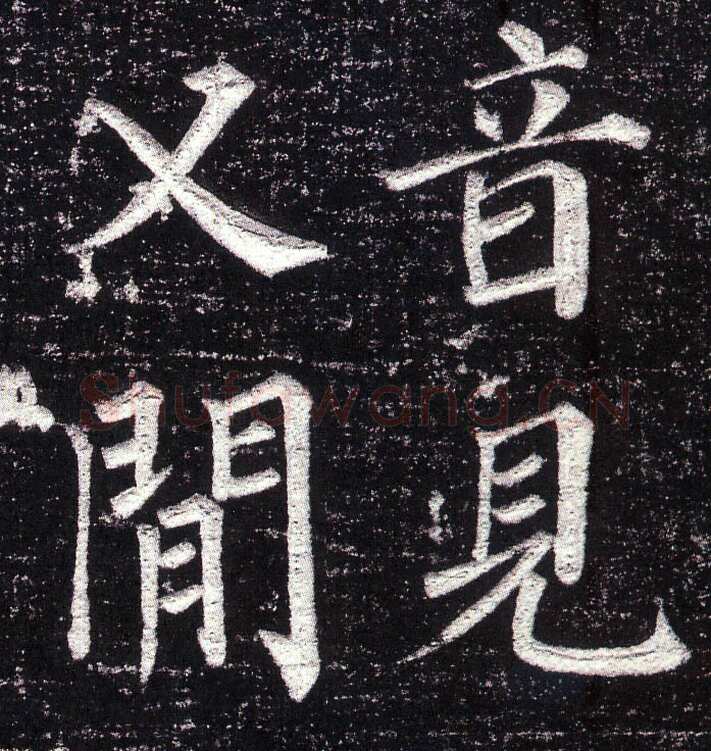 音見
又閒
Shufawang.CN